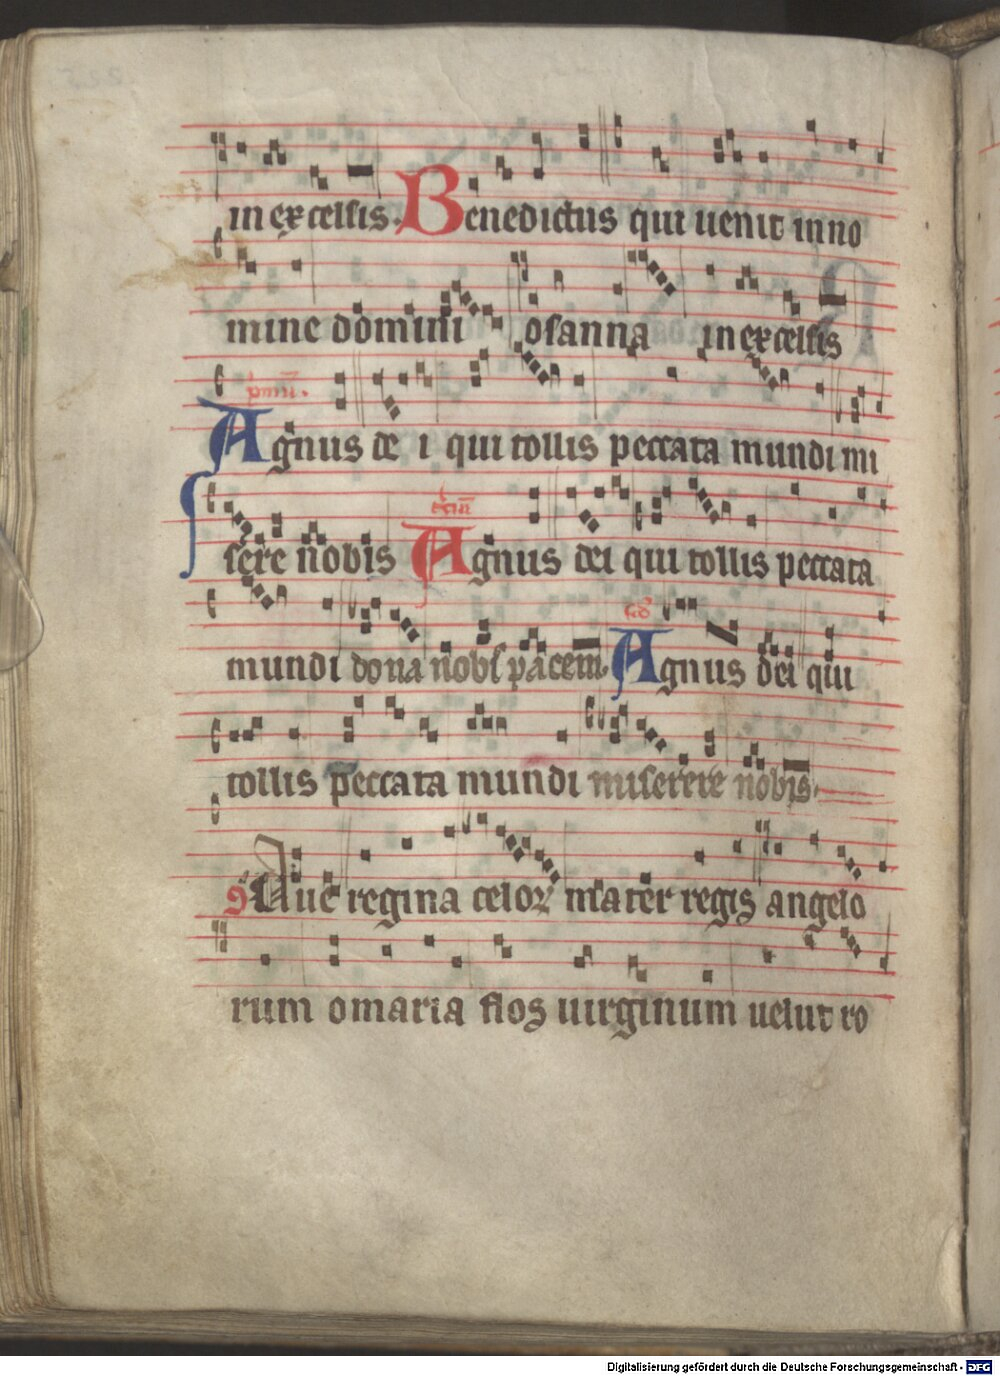 in excelsis. Benedictus qui uenit in no
mine domini osanna in excelsis
Agnus de i qui tollis peccata mundi mi
sere nobis Agnus dei qui tollis peccata
mundi dona nobis pacem. Agnus dei qui
tollis peccata mundi miserere nobis.
Aue regina celoꝝ mater regis angelo
rum o maria flos uirginum uelut ro
Digitalisierung gefördert durch die Deutsche Forschungsgemeinschaft - DFG